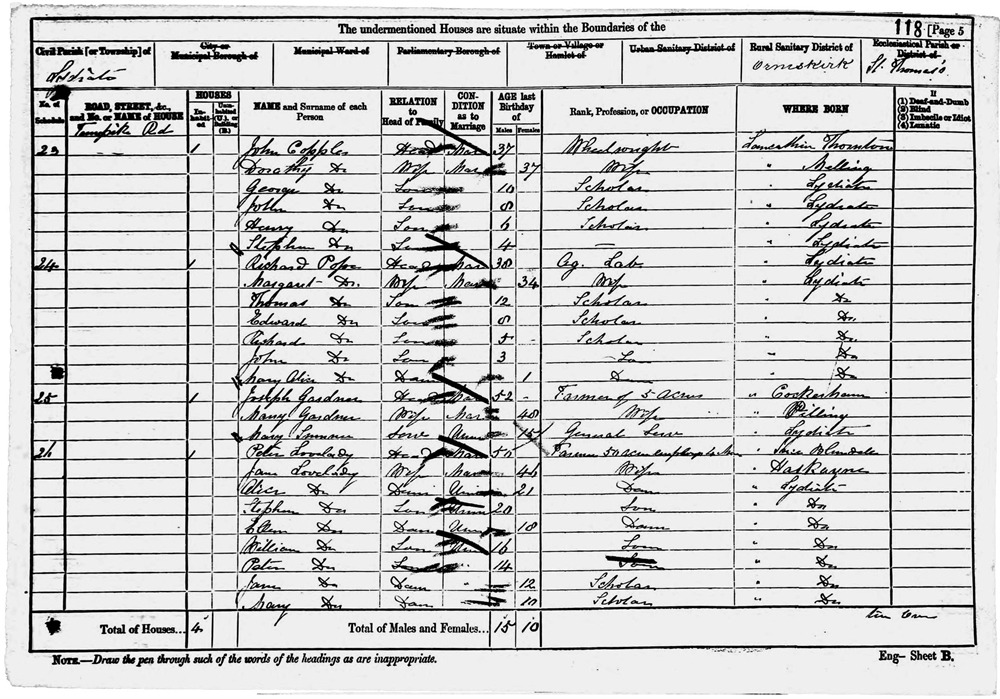 The undermentioned Houses are situate within the Boundaries of the
118 [Page 5
Civil Parish [or Township] of
City or Municipal Borough of
Municipal Ward of
Parliamentary Borough of
Town or Village or Hamlet of
Urban Sanitary District of
Rural Sanitary District of
Ecclesiastical Parish or District of
Lydiate
Ormskirk
St. Thomas's
No. of Schedule
ROAD, STREET, &c., and No. or NAME of HOUSE
HOUSES
In-habit-ed
Unin-habited (U.), or Building (B.)
NAME and Surname of each Person
RELATION to Head of Family
CON-DITION as to Marriage
AGE last Birthday of
Males
Females
Rank, Profession, or OCCUPATION
WHERE BORN
If
(1) Deaf-and-Dumb
(2) Blind
(3) Imbecile or Idiot
(4) Lunatic
Rd
23 1 John Head Mar 37 Wheelwright Thornton
Dorothy Do Wife Mar 37 Wife " Melling
George Do Son 10 Scholar " Lydiate
John Do Son 8 Scholar " Lydiate
Henry Do Son 6 Scholar " Lydiate
Stephen Do Son 4 — " Lydiate
24 1 Richard Pope Head Mar 38 Ag. Lab. " Lydiate
Margaret Do. Wife Mar 34 Wife " Lydiate
Thomas Do Son 12 Scholar " Do
Edward Do Son 8 Scholar " Do.
Richard Do Son 5 Scholar " Do.
John Do Son 3 Son " Do
Mary Alice Do Daur 1 Daur " Do
25 1 Joseph Gardner Head Mar 52 - Farmer of 5 Acres " Cockerham
Mary Gardner Wife Mar 48 Wife " Pilling
Mary Serv Unm 15 General Serv " Lydiate
26 1 Peter Lovelady Head Mar 50 Farmer
Jane Lovelady Wife Mar 46 Wife " Haskayne
Alice Do Daur Unm 21 Daur " Lydiate
Stephen Do Son Unm 20 Son " Do
Ellen Do Daur Unm 18 Daur " Do
William Do Son Unm 16 Son " Do
Peter Do Son 14 Son " Do
Jane Do Daur " 12 Scholar " Do
Mary Do Daur 10 Scholar " Do
Total of Houses... 4
Total of Males and Females... 15 10
NOTE.—Draw the pen through such of the words of the headings as are inappropriate.
Eng— Sheet B.